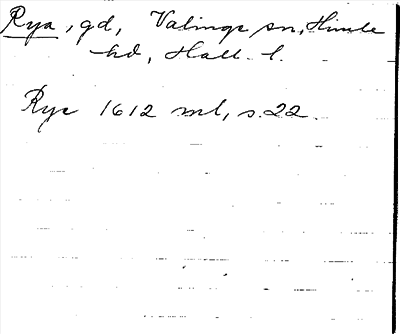 Rya, gd, Valinge sn, Himle
hd, Hall. l.
Rye 1612 ml, s. 22.